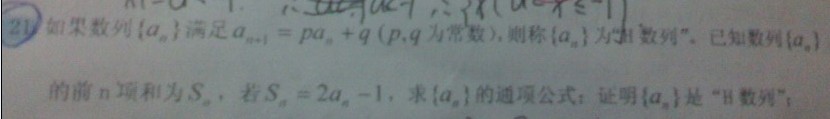 21. 如果数列{aₙ}满足aₙ₊₁ = paₙ + q (p,q为常数),则称{aₙ}为"H数列"。已知数列{aₙ}
的前n项和为Sₙ，若Sₙ = 2aₙ -1，求{aₙ}的通项公式；证明{aₙ}是“H数列”；